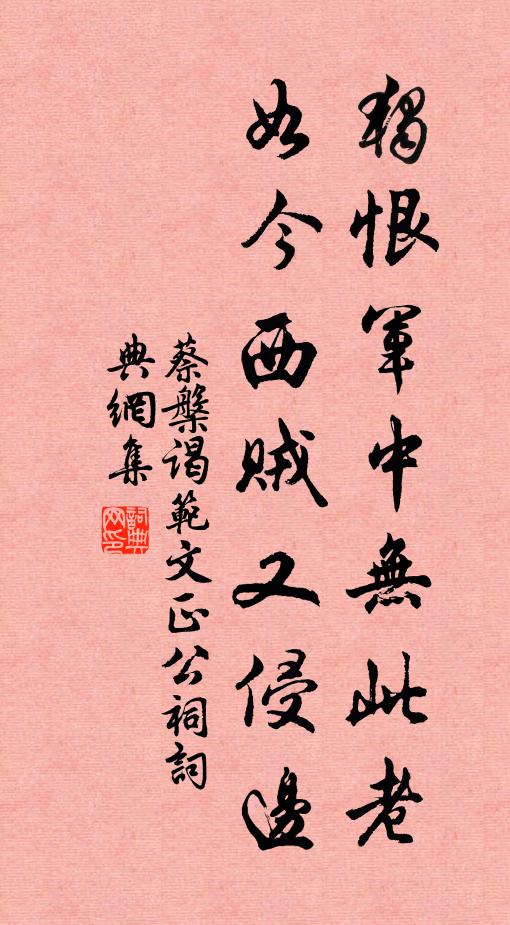 獨恨軍中無此老
如今西賊又侵邊
蔡槃謁範文正公祠詞
典網集
詞典网印